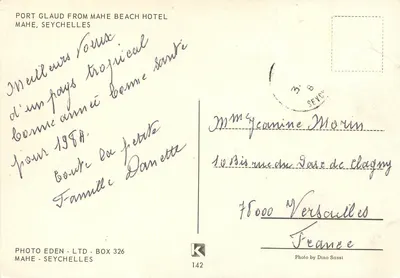 PORT GLAUD FROM MAHE BEACH HOTEL
MAHE, SEYCHELLES
Meilleurs Voeux
d'un pays tropical
bonne année bonne santé
pour 1984.
toute la petite
Famille Danette
PHOTO EDEN - LTD - BOX 326
MAHE - SEYCHELLES
K
142
Mme Jeanine Morin
10 Bis rue du Parc de Clagny
78000 Versailles
France
Photo by Dino Sassi